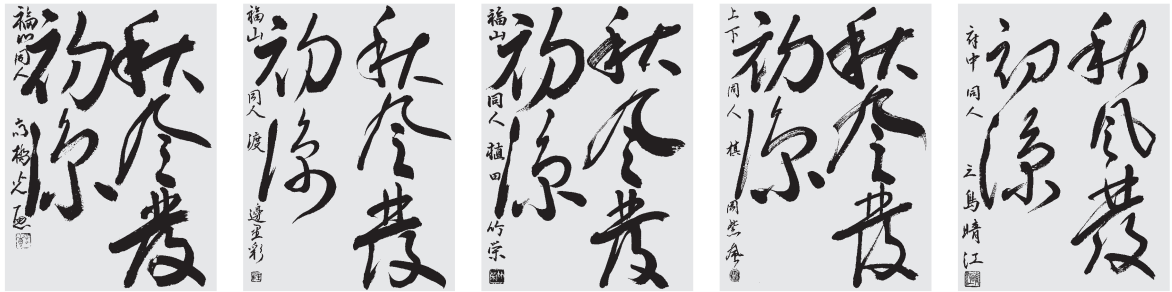 秋風發
初涼
福山同人 高橋光
秋風發
初涼
福山 同人 渡邊里彩
秋風發
初涼
福山 同人 植田竹榮
秋風發
初涼
上下 同人 棋
秋風發
初涼
府中 同人 三島晴江